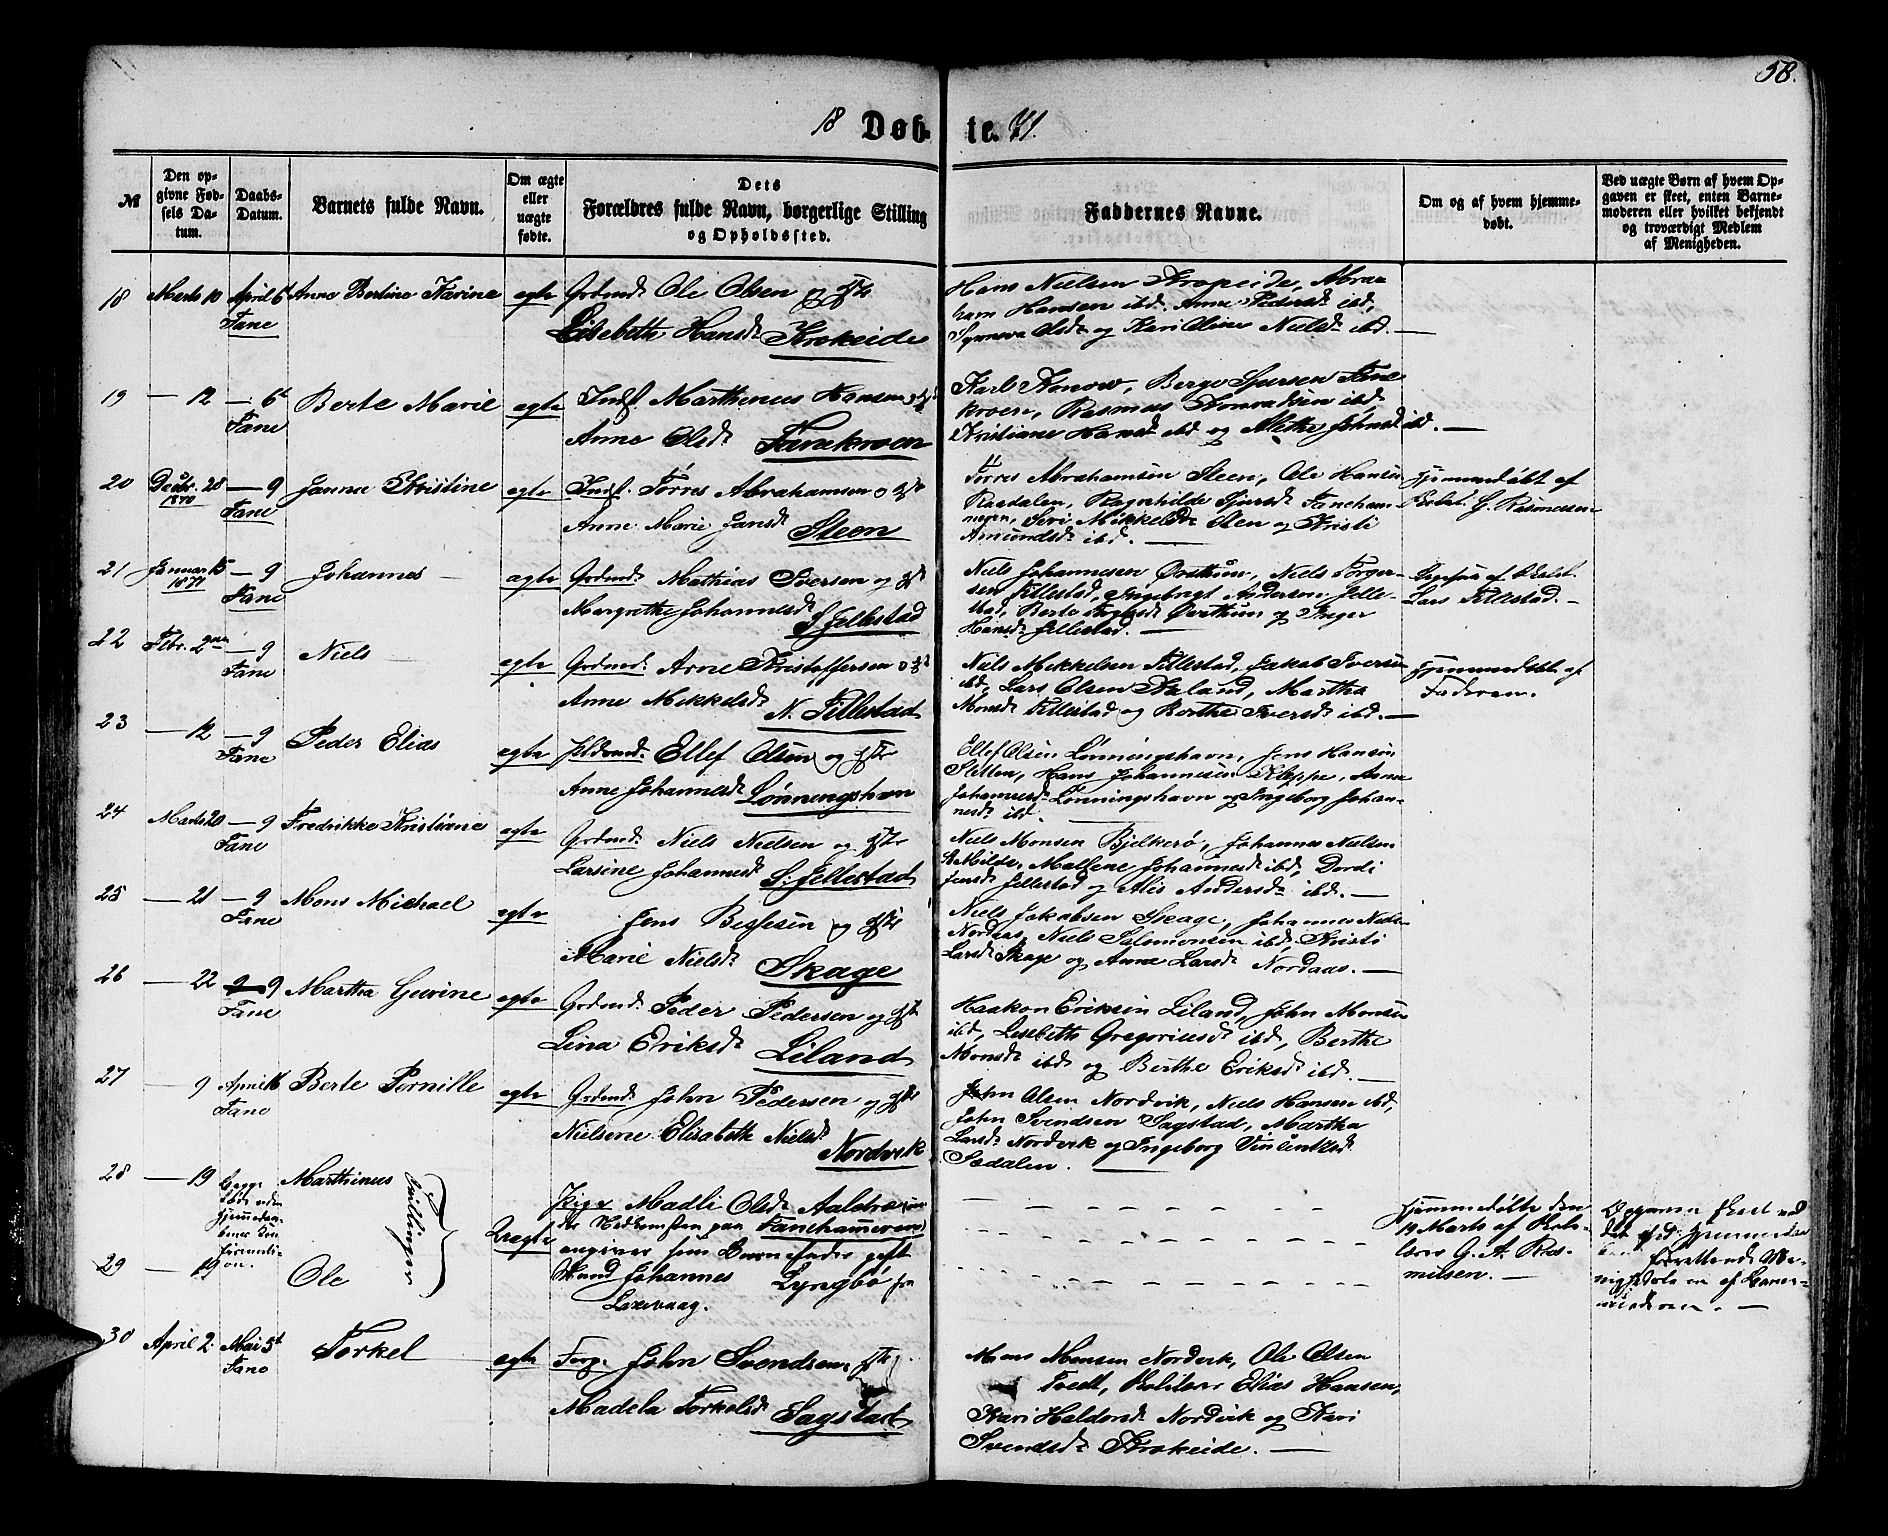 58.
18 Døb- te. 71.
№
Den opgivne Fødsels Datum.
Daabs-Datum.
Barnets fulde Navn.
Om ægte eller uægte fødte.
Dets Forældres fulde Navn, borgerlige Stilling og Opholdssted.
Faddernes Navne.
Om og af hvem hjemmedøbt.
Ved uægte Børn af hvem Opgaven er skeet, enten Barnemoderen eller hvilket bekjendt og troværdigt Medlem af Menigheden.
18 Marts 10 April 6t Anne Bertine Karine ægte Grdmd. Ole Olsen og Hstr
Fane
Lisebeth Hansdt Krokeide
Hans Nielsen Krokeide, Abra
ham Hansen ibd. Anne Pedersdt ibd,
Synneva Olsdt og Kari Oline Nielsdt ibd. —
19 — 12 — 6t Berte Marie ægte Indst. Marthinus Hansen og Hst
Fane
Anne Olsdt Fanekroen
Karl Konow, Berge Sjursen Fane
kroen, Rasmus Konradsen ibd
Kristiane Hansdt ibd og Mette Johnsd ibd. —
20 Decbr. 28 — 9 Janna Kristine ægte Indst. Torres Abrahamsen og Hst
1870 Fane
Anne Marie Jansdt Steen
Torres Abrahamsen Steen, Ole Hansen
Rasdalen, Ragnhilde Sjursdt Faneham-
meren, Siri Mikkelsdt Steen og Kristi
Amundsdt ibd. —
Hjemmedøbt af
Skolel. G. Rasmussen
21 Januar 15 — 9 Johannes — ægte Grdmd. Mathias Iversen og Hst
1871 Fane
Margrethe Johannesdt S. Jellestad
Niels Johannesen Øvsthun, Niels Torger-
sen Fillestad, Ingebrigt Andersen Jelle-
stad, Berte Øvsthun og Inger
Hansdt Jellestad. —
Lars Fillestad. —
22 Febr. 2den — 9 Niels — ægte Grdmd. Arne Kristoffersen og Hst
Fane
Anne Mikkelsdt N. Fillestad
Niels Mikkelsen Fillestad, Jakob Iversen
ibd, Lars Olsen Aaland, Martha
Monsdt Fillestad og Berthe Iversdt ibd. —
Hjemmedøbt af
Faderen.
23 — 12 — 9 Peder Elias ægte Ellef Olsen og Hstr
Fane
Anne Johannesdt Lønningshavn
Ellef Olsen Lønningshavn, Jens Hansen
Sletten, Hans Johannesen Kleppe, Anna
Johannesdt Lønningshavn og Ingeborg Johan-
nesdt ibd.
24 Marts 20 — 9 Fredrikke Kristiane ægte Grdmd. Niels Nielsen og Hstr
Fane
Larsine Johannesdt S. Jellestad
Niels Monsen Bjelkerø, Johannes Nielsen
Milde, Malene Johannesdt ibd, Dordi
Jensdt Jellestad og Alis Andersdt ibd. —
25 — 21 — 9 Mons Michael ægte Jens Bessesen og Hstr
Fane
Marie Nielsdt Skage
Niels Jakobsen Skage, Johannes Niels
Nordaas, Niels Salomonsen ibd, Kristi
Larsdt Skage og Anna Larsdt Nordaas. —
26 — 22 9 9 Martha Gurine ægte Grdmd. Peder Pedersen og Hst
Fane
Lina Eriksdt Liland
Haakon Eriksen Liland, John Monsen
ibd, Lisebeth Gregoriusdt ibd, Berthe
Monsdt ibd og Berthe Eriksdt ibd. —
27 — 9 April 16 Berte Pernille ægte Grdmd. John Pedersen og Hstr
Fane
Nielsine Elisabeth Nielsdt Nordvik
John Olsen Nordvik, Niels Hansen ibd,
John Svendsen Sagstad, Martha
Larsdt Nordvik og Ingeborg Vincentsdt
Sædalen.
28 — 19 Begge døde uden Marthinus Tvillinger Uægte Pige Madli Olsdt
29 — 19 Ole
Fanehammeren
angiver som Barnefader gift
Mand Johannes Lyngbø fra
Laxevaag.
Hjemmedøbte den
19 Marts af Sko-
lærer G. A. Ras-
mussen. —
30 April 2. Mai 5t Torkel ægte Forp. John Svendsen, Hstr
Fane
Madela Torkelsdt Sagstad
Mons Monsen Nordvik, Ole Olsen
Tvedt, Skolelærer Elias Hansen,
Kari Haldorsdt Nordvik og Kari
Svendsdt Krokeide. —